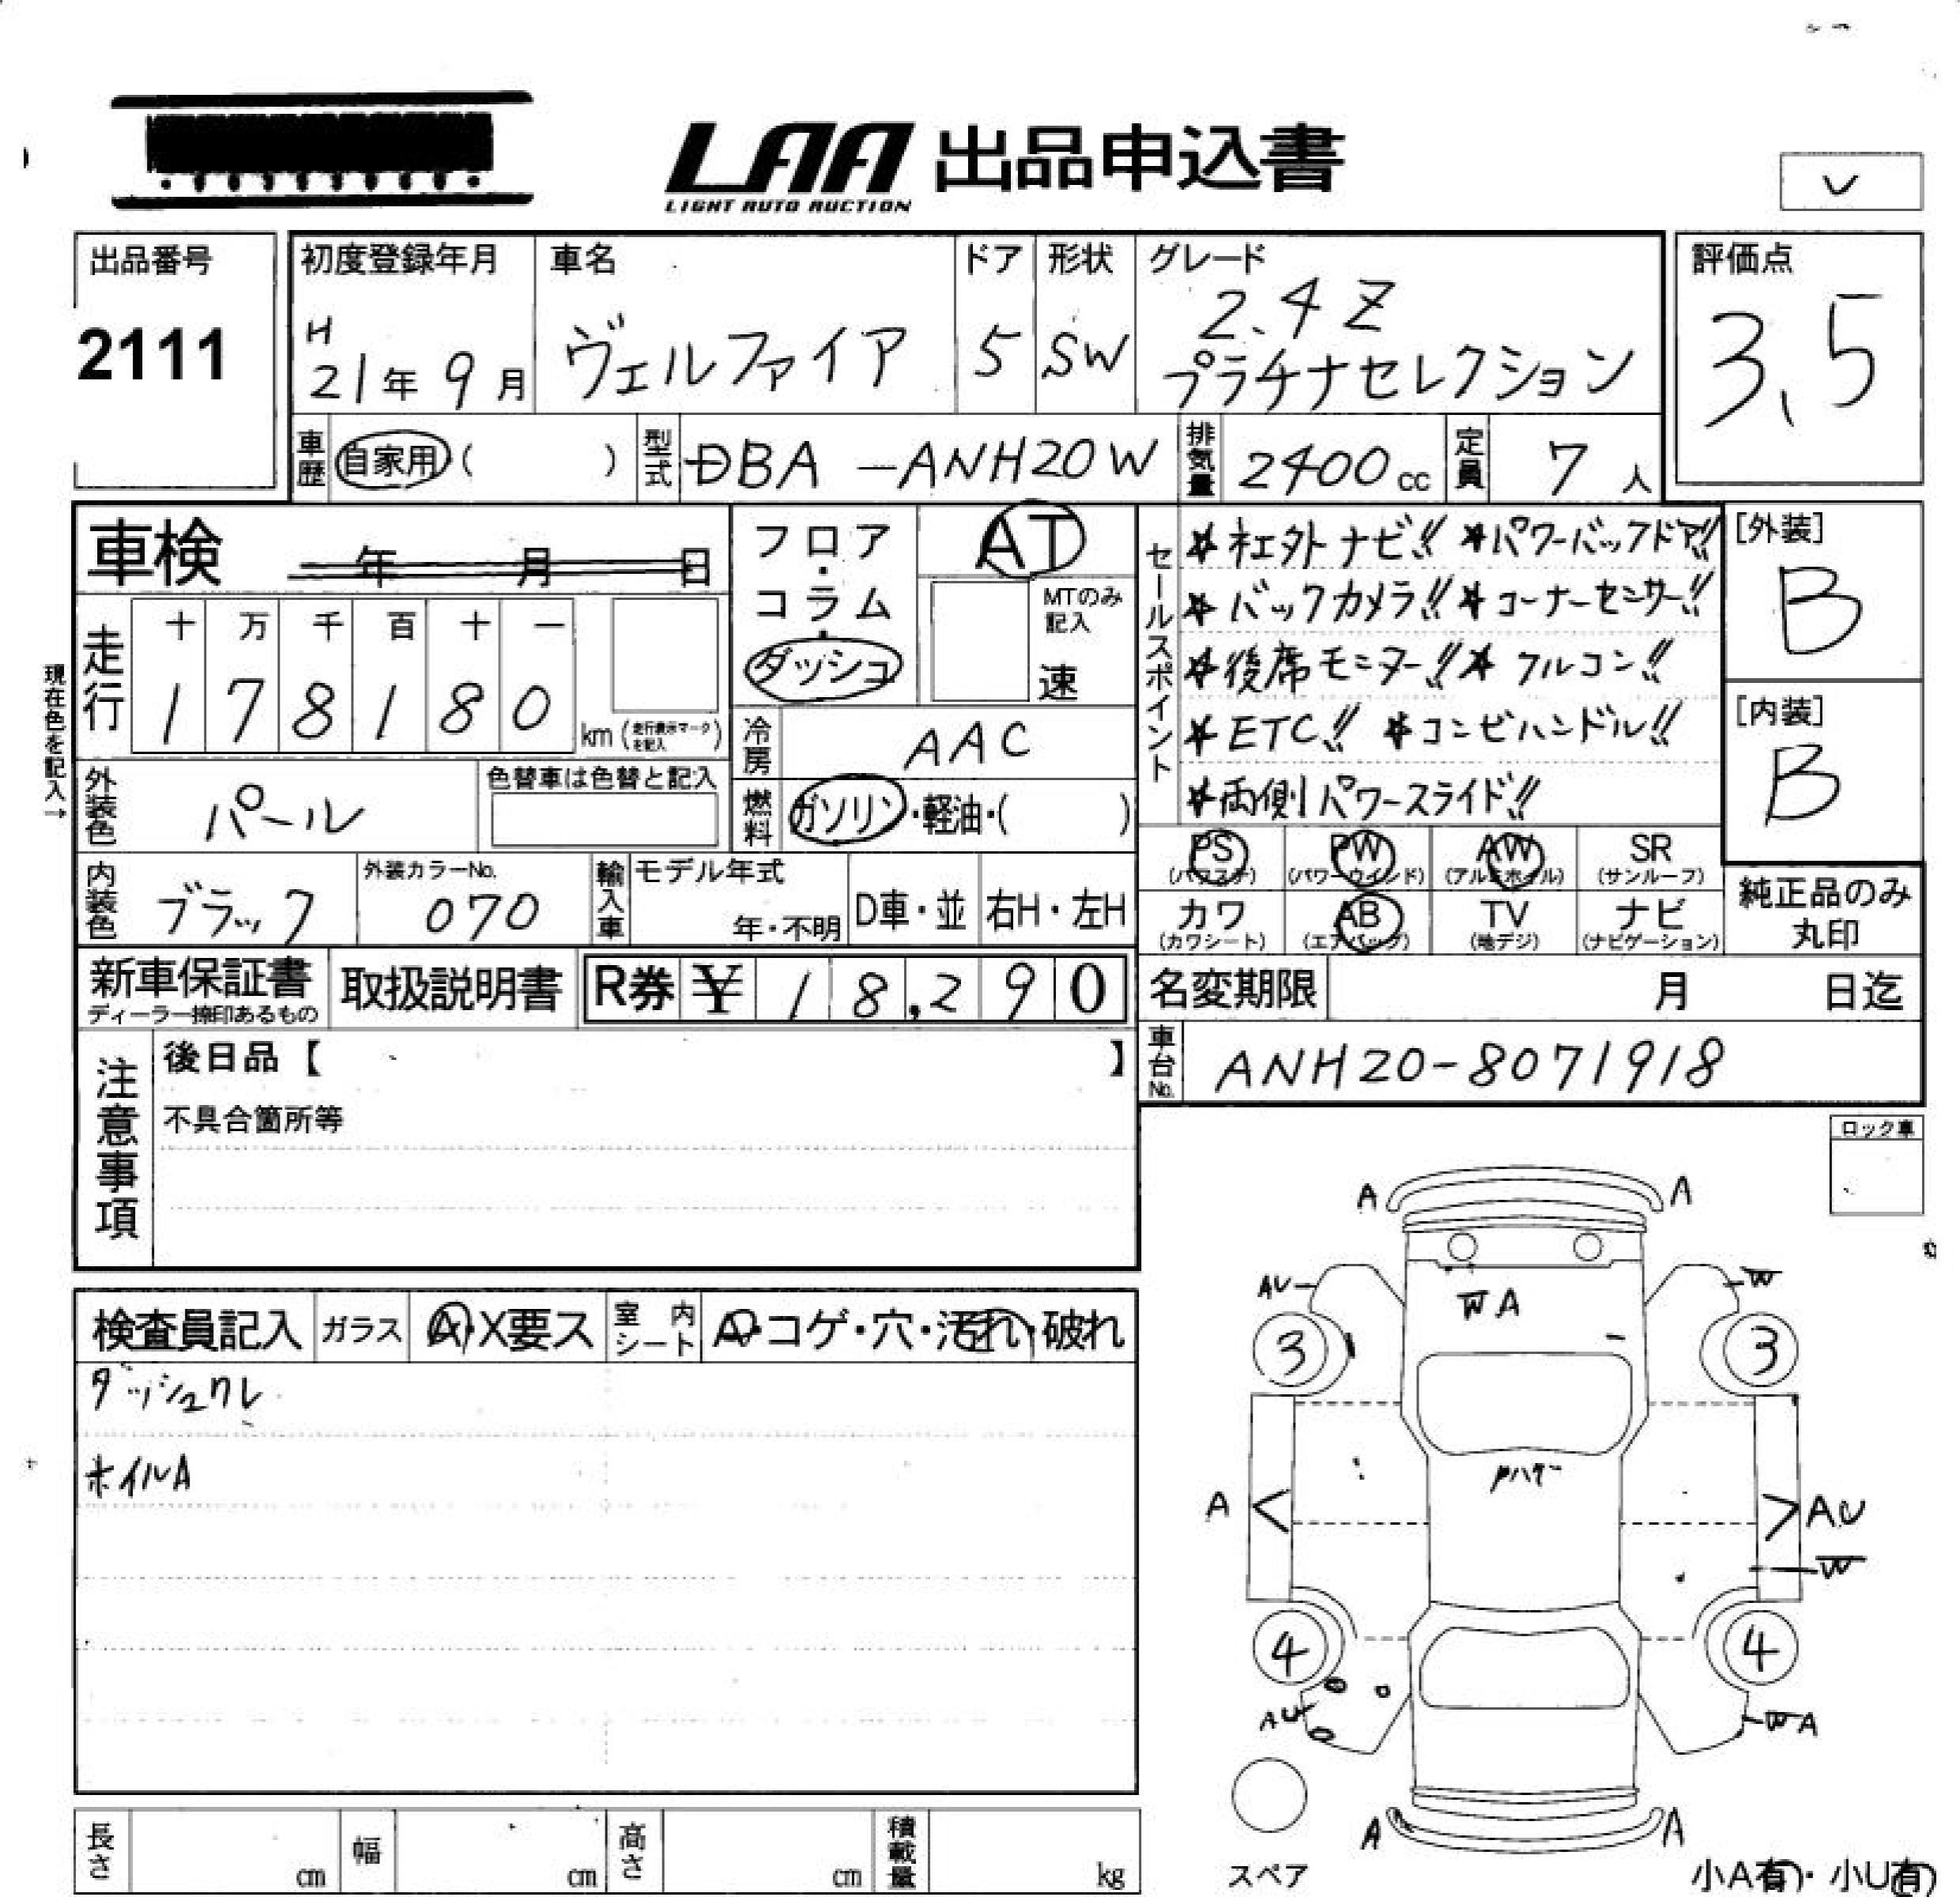 LAA 出品申込書
LIGHT AUTO AUCTION
出品番号
2111
初度登録年月
H
21年 9月
車名
ヴェルファイア
ドア
5
形状
SW
グレード
2.4 Z
プラチナセレクション
評価点
3.5
車歴 自家用 ( )
型式 DBA-ANH20W
排気量 2400cc
定員 7人
車検 年 月 日
現在色を記入→
走行
十 万 千 百 十 一
1 7 8 1 8 0 km (走行表示マークを記入)
フロア・コラム・ダッシュ
AT
MTのみ記入
速
冷房 AAC
燃料 ガソリン・軽油・( )
外装色 パール
色替車は色替と記入
内装色 ブラック
外装カラーNo.
070
輸入車
モデル年式
年・不明
D車・並
右H・左H
セールスポイント
★社外ナビ!! ★パワーバックドア!!
★バックカメラ!! ★コーナーセンサー!!
★後席モニター!! ★クルコン!!
★ETC!! ★コンビハンドル!!
★両側パワースライド!!
[外装]
B
[内装]
B
PS (パワステ)
PW (パワーウインド)
AW (アルミホイル)
SR (サンルーフ)
カワ (カワシート)
AB (エアバッグ)
TV (地デジ)
ナビ (ナビゲーション)
純正品のみ
丸印
新車保証書
ディーラー捺印あるもの
取扱説明書
R券 ¥ 18,290
名変期限 月 日迄
車台No. ANH20-8071918
注意事項
後日品【 】
不具合箇所等
ロック車
検査員記入
ガラス A・X要ス
室内シート A・コゲ・穴・汚れ・破れ
ダッシュワレ
ホイルA
A A
AU W
WA
3 3
ハゲ
A AU
W
4 4
AU WA
A A
スペア
小A有・小U有
長さ cm
幅 cm
高さ cm
積載量 kg